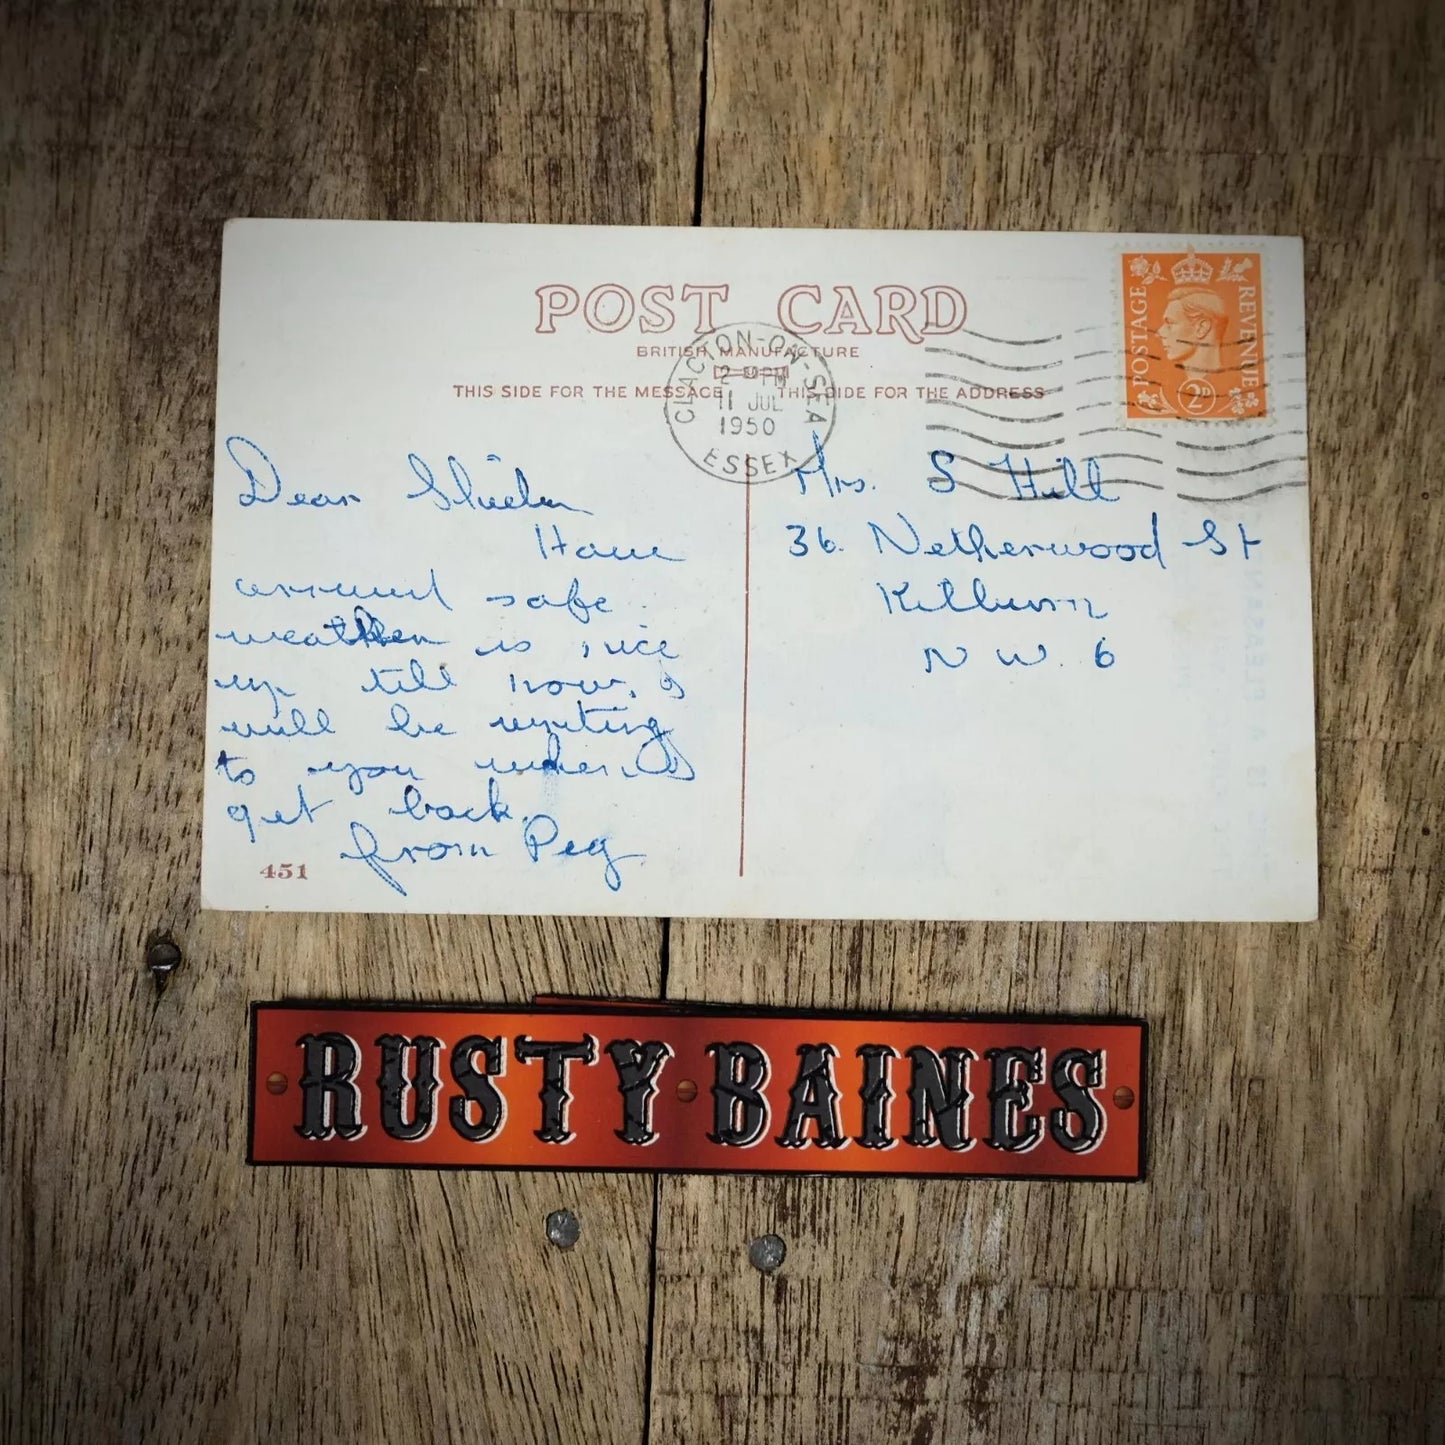 POST CARD
BRITISH MANUFACTURE
THIS SIDE FOR THE MESSAGE THIS SIDE FOR THE ADDRESS
CLACTON-ON-SEA
PM
11 JUL
1950
ESSEX
POSTAGE REVENUE
2D
Dear Shiela
Have
arrived safe.
weather is nice
up till now. I
will be writing
to you when I
get back.
from Peg.
451
Mrs. S Hill
36. Netherwood St
Kilburn
N W. 6
RUSTY BAINES